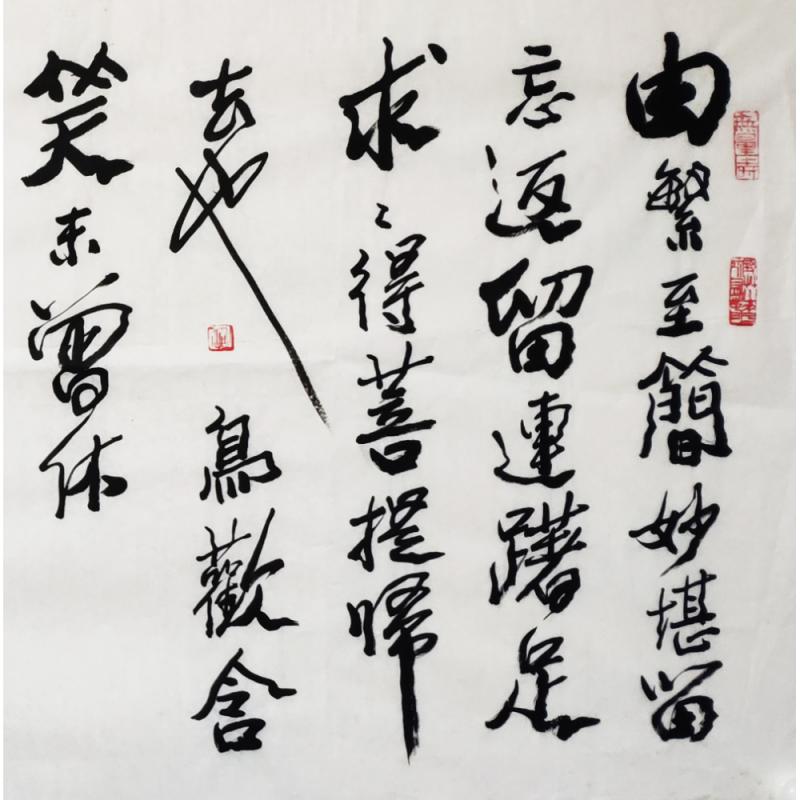 由繁至簡妙堪留
忘返留連躇足
求〻得菩提啼
去也鳥歡含
笑未曾休
無量壽